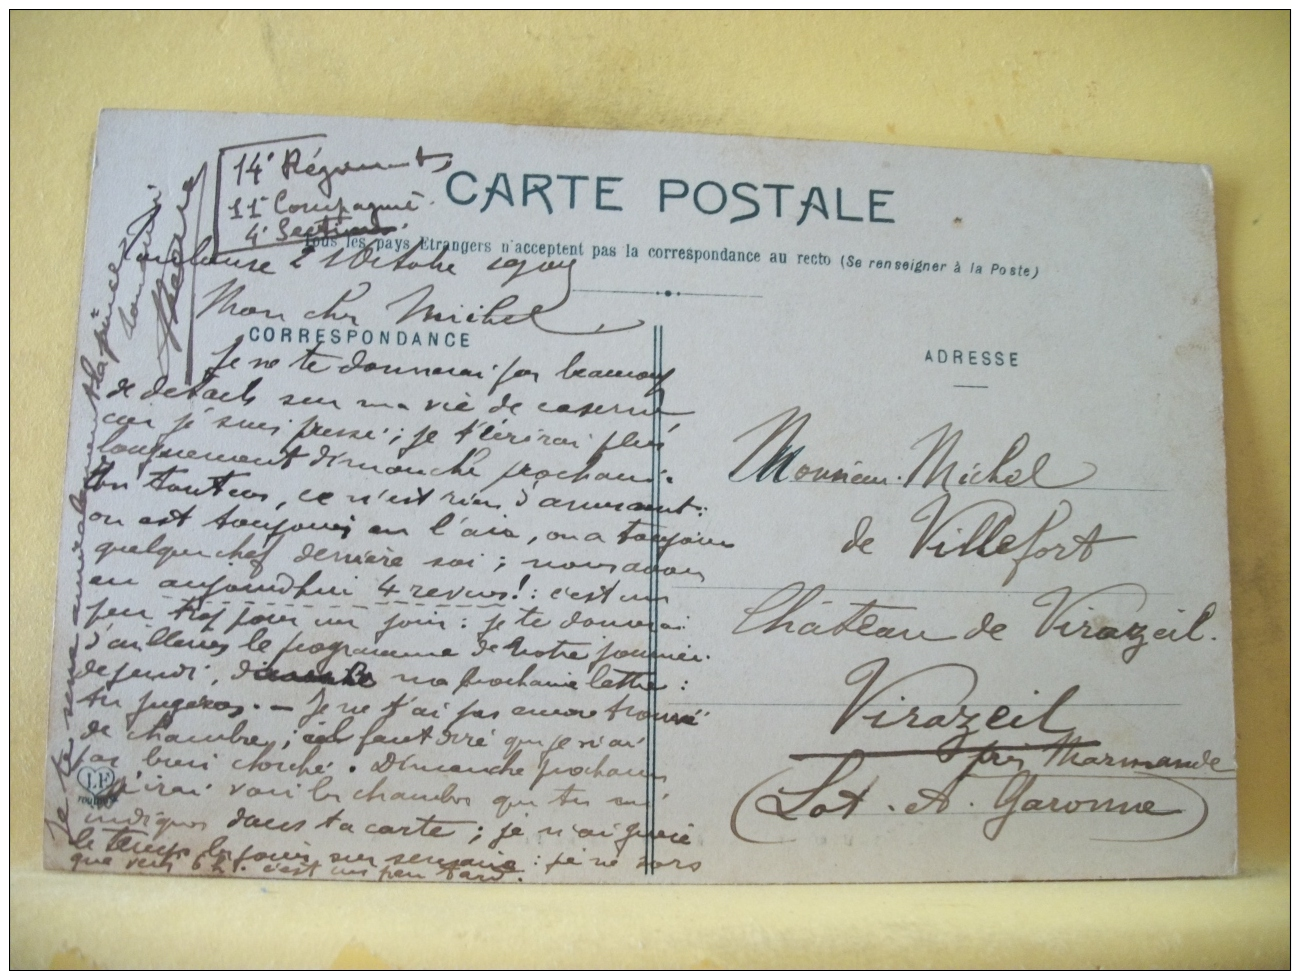 14e Régiment
11e Compagnie
4e Section
CARTE POSTALE
Tous les pays Etrangers n'acceptent pas la correspondance au recto (Se renseigner à la Poste)
Toulouse 2 Octobre
Mon cher Michel
CORRESPONDANCE
Je ne te donnerai pas beaucoup
de détails sur ma vie de caserne
car je suis pressé ; je t'écrirai plus
longuement dimanche prochain.
En tout cas, ce n'est rien d'amusant :
on est toujours en l'air, on a toujours
quelque chef derrière soi ; nous avons
eu aujourd'hui 4 revues ! : c'est un
peu trop pour un jour : je te donnerai
d'ailleurs le programme de notre journée
de jeudi, ma prochaine lettre :
tu jugeras. — Je ne t'ai pas encore trouvé
de chambre ; il faut dire que je n'ai
pas bien cherché. Dimanche prochain
j'irai voir les chambres que tu m'
indiques dans ta carte ; je n'ai guère
le temps les jours sur semaine : je ne sors
que vers 6 h. c'est un peu tard.
Je te serre amicalement la pince
ADRESSE
Monsieur Michel
de Villefort
Château de Virazeil.
Virazeil
près Marmande
(Lot. et. Garonne)
LF